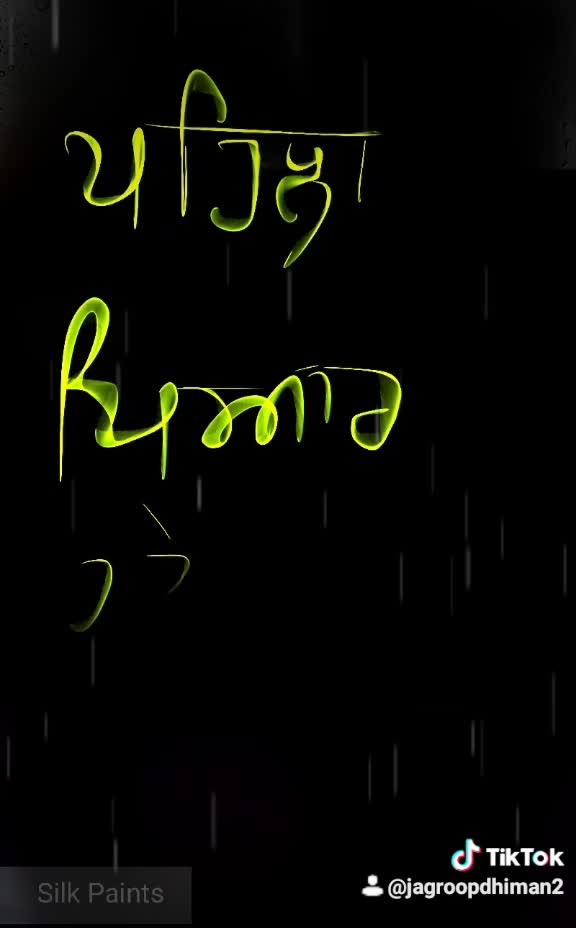 ਪਹਿਲਾ
ਪਿਆਰ
TikTok
Silk Paints
@jagroopdhiman2